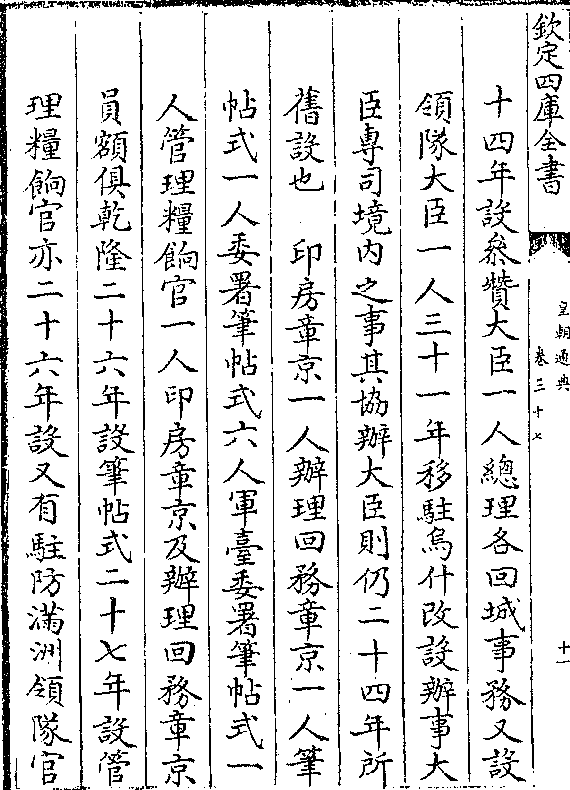 欽定四庫全書
皇朝通典
卷三十七
十一
十四年設叅贊大臣一人總理各回城事務又設
領隊大臣一人三十一年移駐烏什改設辦事大
臣專司境内之事其協辦大臣則仍二十四年所
舊設也 印房章京一人辦理回務章京一人筆
帖式一人委署筆帖式六人軍臺委署筆帖式一
人管理糧餉官一人印房章京及辦理回務章京
員額俱乾隆二十六年設筆帖式二十七年設管
理糧餉官亦二十六年設又有駐防滿洲領隊官